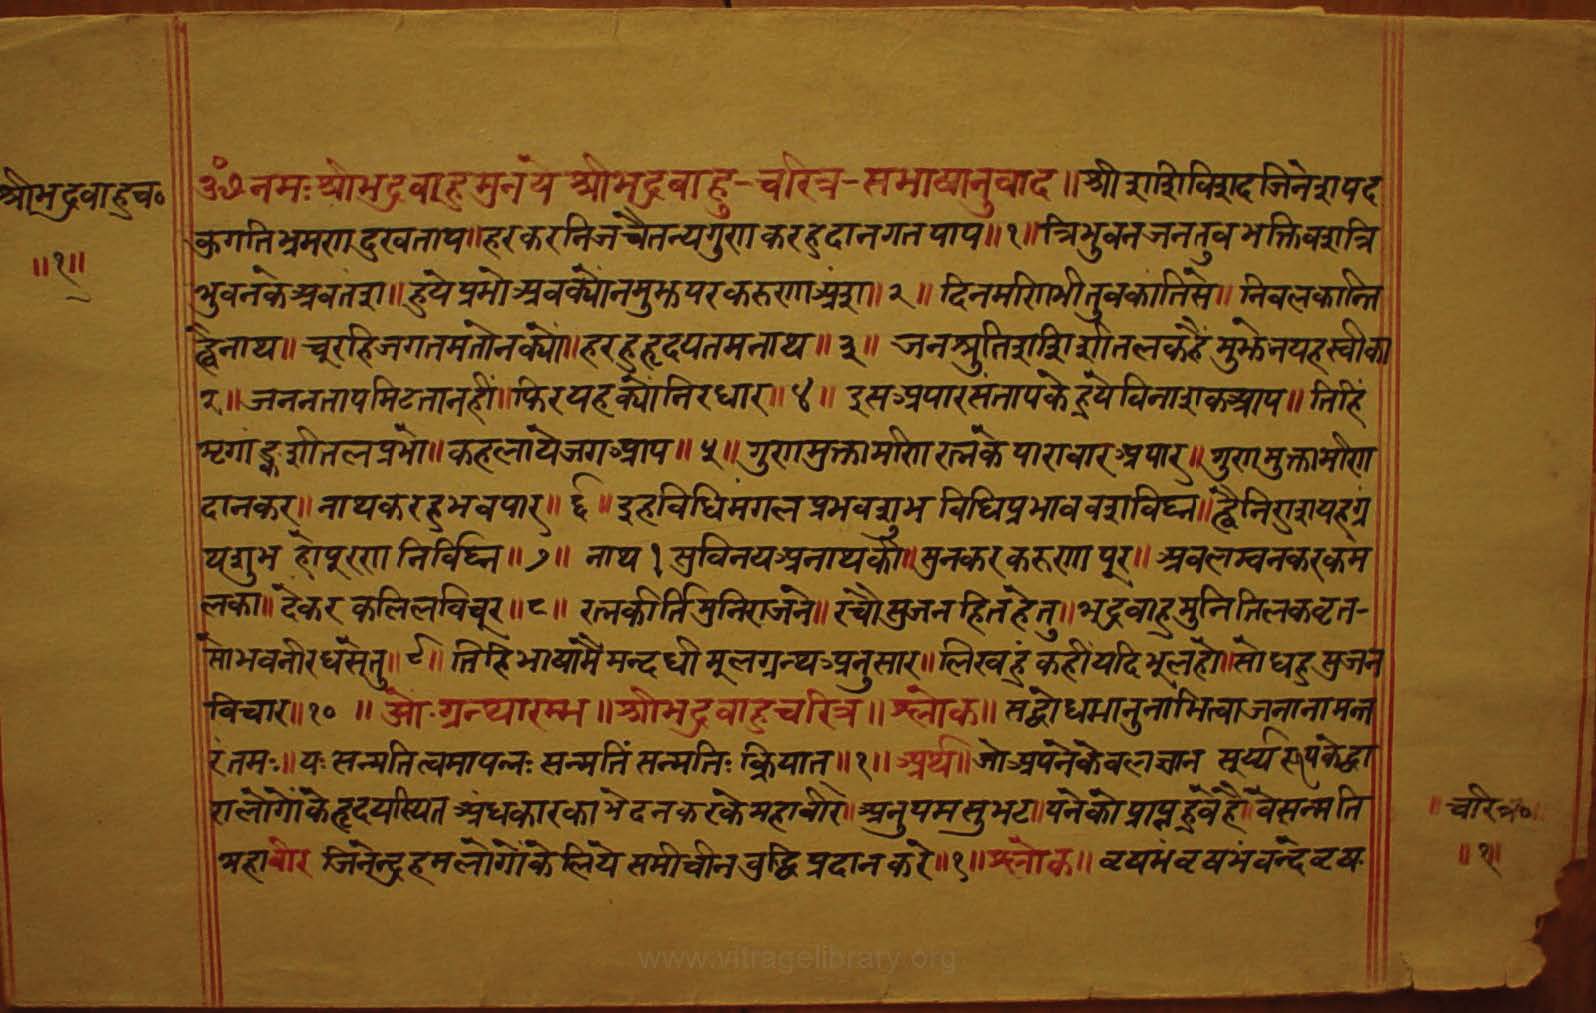 श्रीभद्रवाहुच०
॥१॥
ॐ नमः श्रीभद्रवाहुमुनये श्रीभद्रबाहु-चरित्र-सभाषानुवाद॥श्री शशिविशद जिनेशपद
कुगति भ्रमण दुखताप॥हरकर निज चैतन्यगुण करहु दान गत पाप॥१॥त्रिभुवन जन तुव भक्तिवश त्रि
भुवनके अवतंश॥हुये प्रभो अव क्योंन मुझपर करुणा अंश॥२॥ दिनमणि भी तुव कांतिसे॥ निवल कान्ति
ह्वै नाथ॥ चूरहि जगतम तो न क्यों॥हरहु हृदय तम नाथ॥३॥ जनश्रुति शशि शीतल कहैं मुझे न यह स्वीका
र॥जनन ताप मिटता नहीं॥फिर यह क्यों निरधार॥४॥ इस अपार संतापके हुये विनाशक आप॥तिहिं
मृगाङ्क शीतल प्रभो॥कहलाये जग आप॥५॥ गुणमुक्तामणि रत्नके पारावार अपार॥गुणमुक्तामणि
दानकर॥नाथ करहु भव पार॥६॥इह विधि मंगल प्रभव शुभ विधि प्रभाव वश विघ्न॥ह्वै निराश यह ग्रं
थ शुभ हो पूरण निर्विघ्न॥७॥ नाथ ! सुविनय अनाथकी॥सुनकर करुणा पूर॥अवलम्वन कर कम
लका॥देकर कलिल विचूर॥८॥ रत्नकीर्ति मुनिराजने॥रचौ सुजन हित हेतु॥भद्रवाहु मुनि तिलक वृत-
सो भव नीरध सेतु॥९॥तिहि भाषा मै मन्द धी मूलग्रन्थ अनुसार॥लिखहुं कहीं यदि भूल हो॥सोधहु सुजन
विचार॥१०॥ ओं-ग्रन्थारम्भ॥श्रीभद्रवाहुचरित्र॥श्लोक॥सद्बोधभानुनाभित्वा जनानामन्त
रं तमः॥यः सन्मतित्वमापन्नः सन्मतिं सन्मतिः क्रियात्॥१॥अर्थ॥जो अपने केवलज्ञान सूर्य्य रूपके द्वा
रा लोगोंके हृदयस्थित अंधकारका भेदन करके महावीर॥अनुपम सुभट॥पनेको प्राप्त हुवे है॥वे सन्मति
महावीर जिनेन्द्र हमलोगोंके लिये समीचीन वुद्धि प्रदान करे॥१॥श्लोक॥वृषभं वृषभं वन्दे वृष
चरित्र०
॥१॥
www.vitragelibrary.org